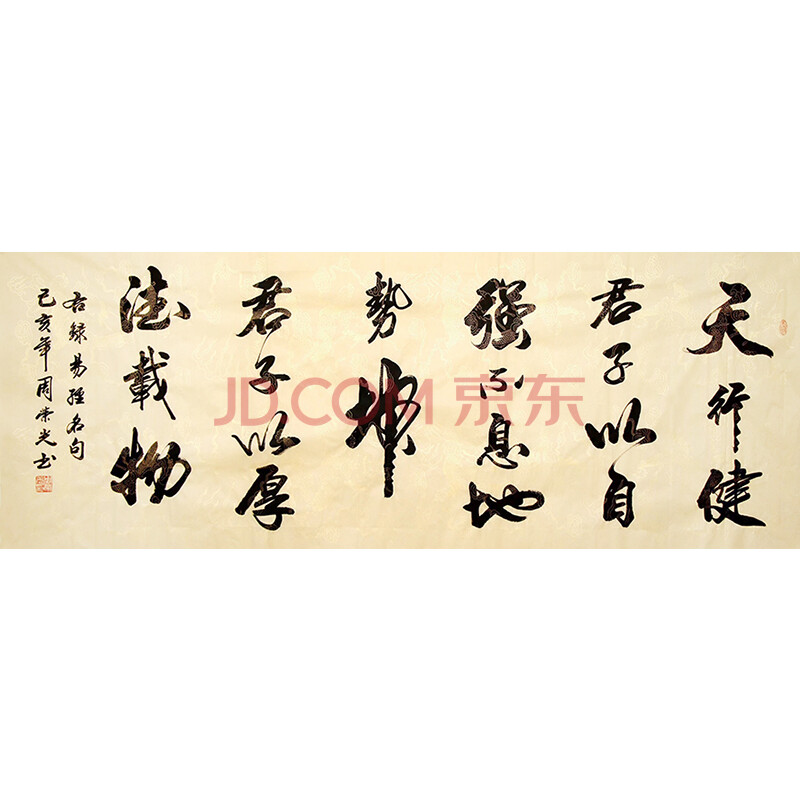 天行健
君子以自
强不息地
势坤
君子以厚
德載物
右録易經名句
己亥年周荣光书
JD.COM 京东